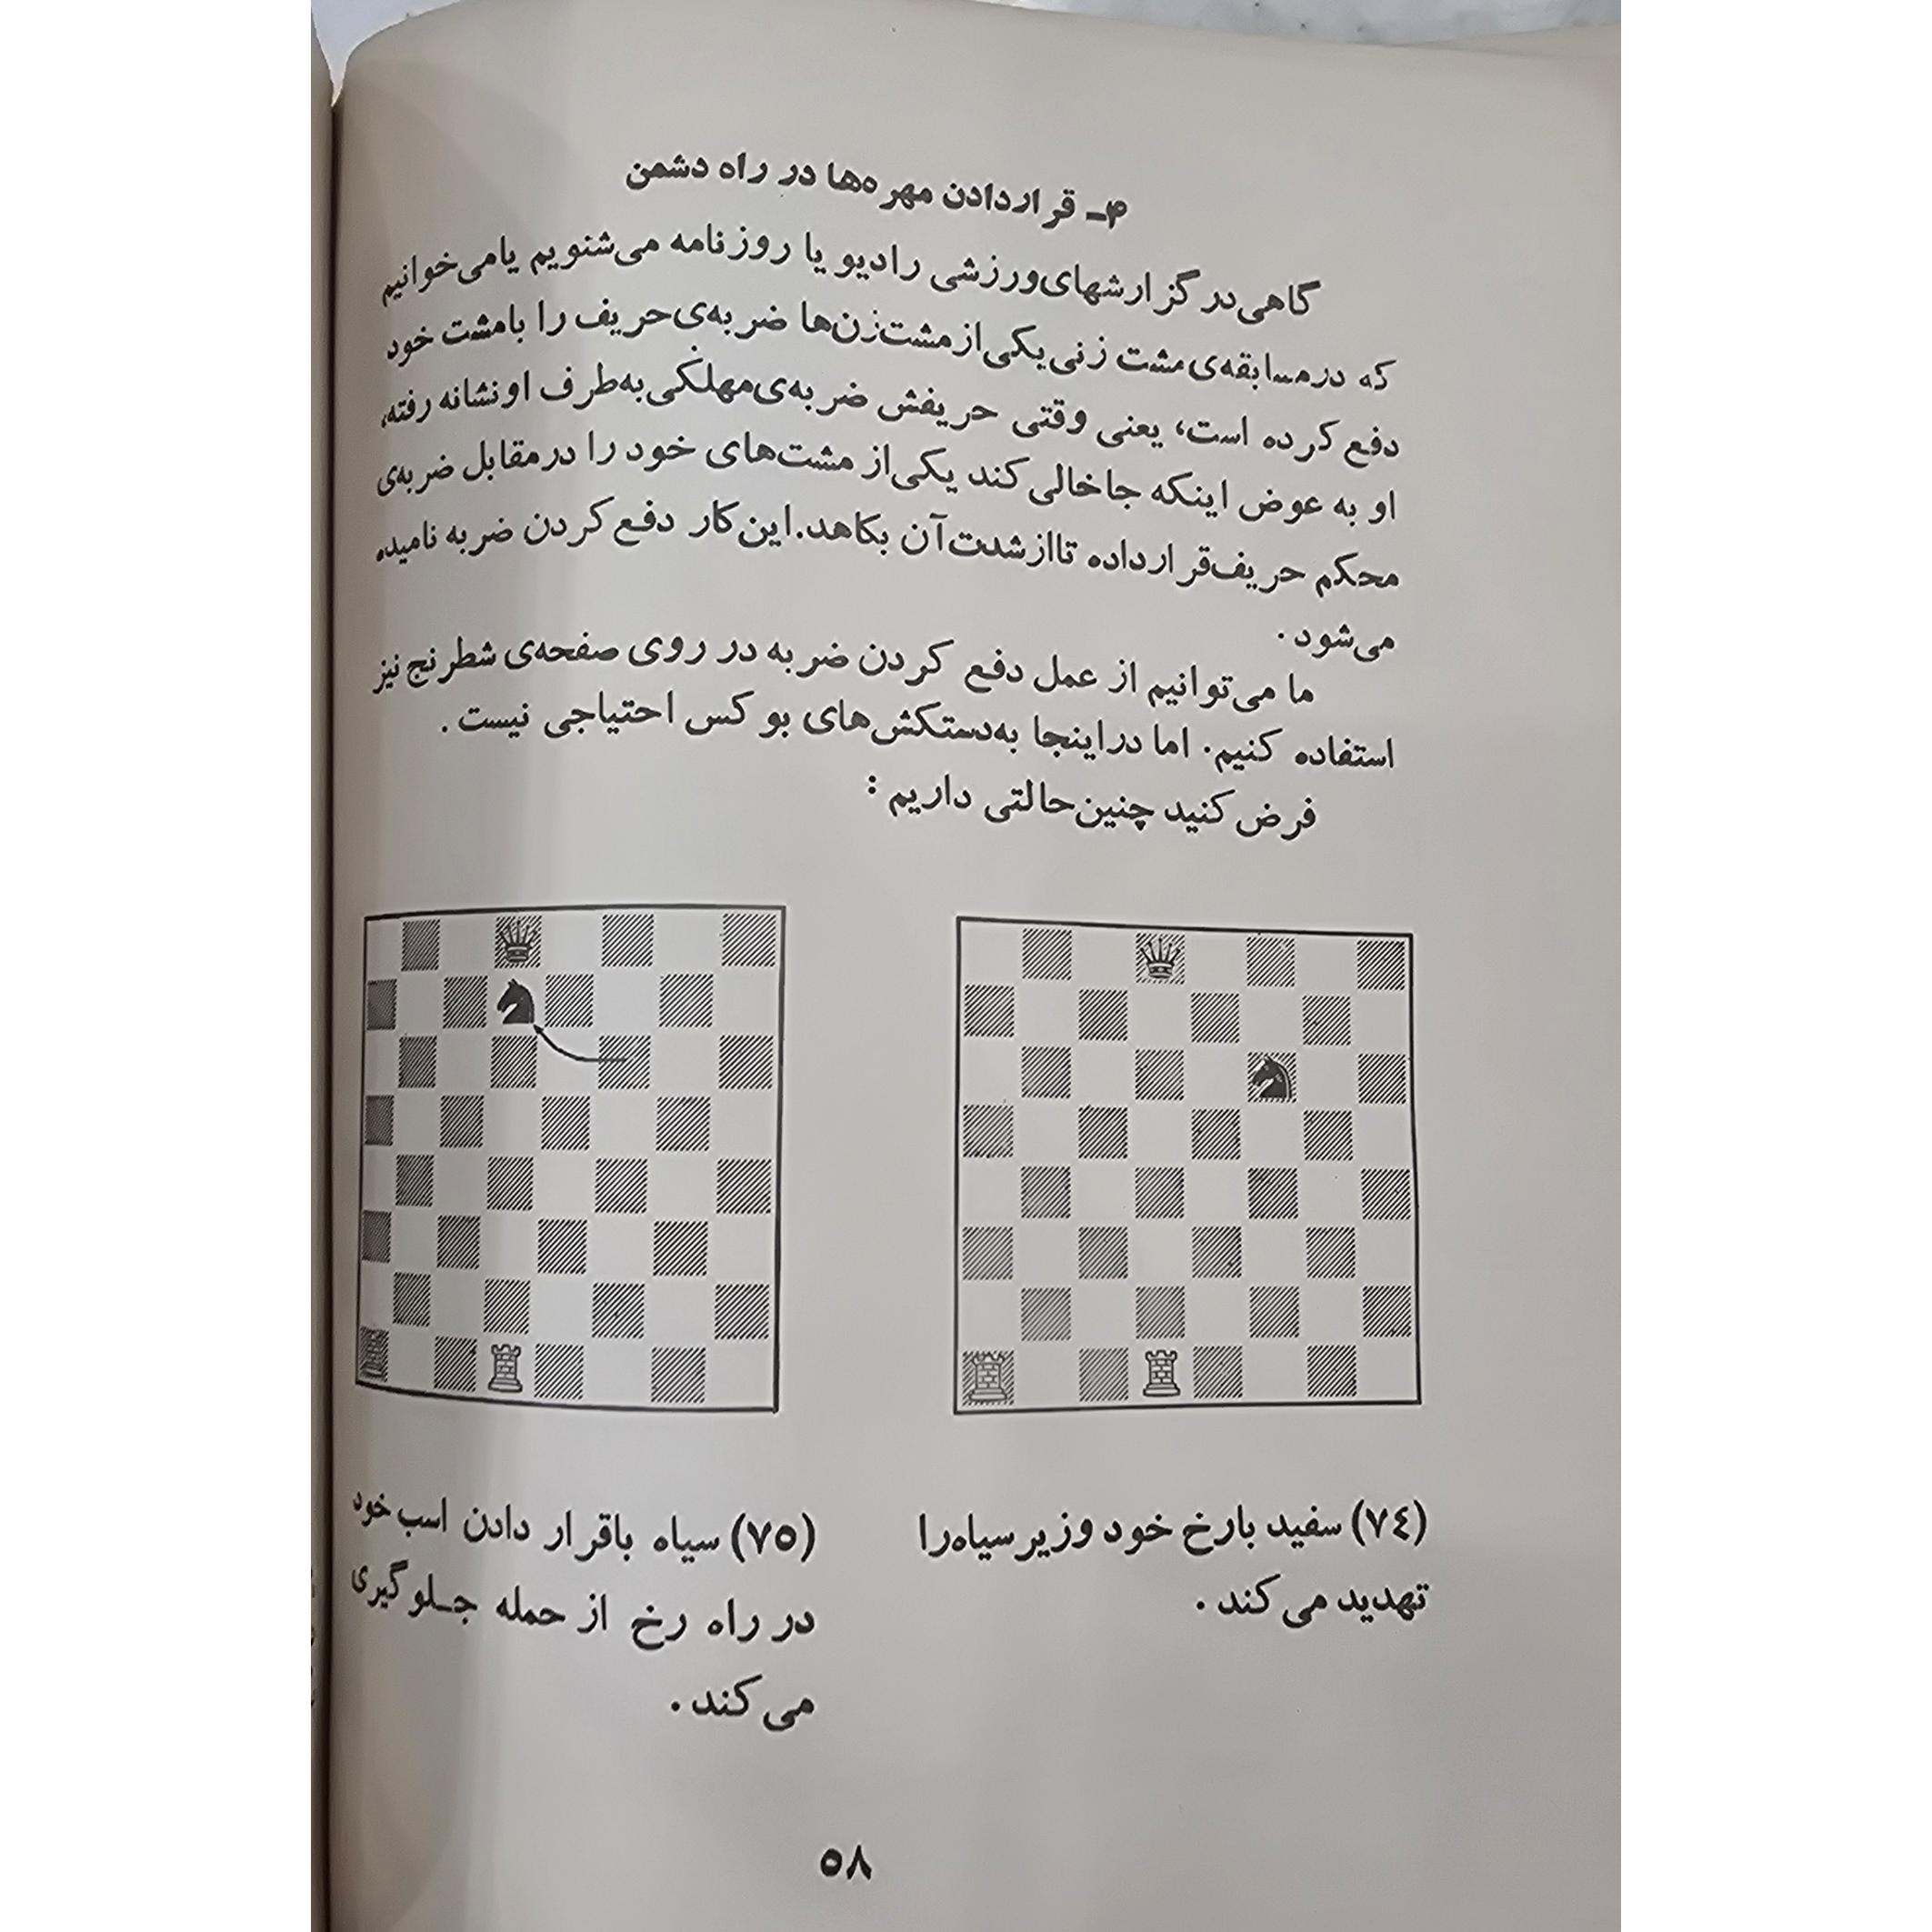 ۴ـ قراردادن مهره‌ها در راه دشمن
گاهی‌در گزارشهای‌ورزشی رادیو یا روزنامه می‌شنویم یامی‌خوانیم
که درمسابقه‌ی مشت زنی یکی‌از مشت‌زن‌ها ضربه‌ی‌حریف را بامشت خود
دفع کرده است، یعنی وقتی حریفش ضربه‌ی‌مهلکی به‌طرف او نشانه رفته،
او به عوض اینکه جاخالی کند یکی‌از مشت‌های خود را درمقابل ضربه‌ی
محکم حریف‌قرارداده تااز‌شدت‌آن بکاهد. این‌کار دفع کردن ضربه نامیده
می‌شود.
ما می‌توانیم از عمل دفع کردن ضربه در روی صفحه‌ی شطرنج نیز
استفاده کنیم. اما دراینجا به‌دستکش‌های بوکس احتیاجی نیست.
فرض کنید چنین‌حالتی داریم:
(۷٤) سفید بارخ خود وزیر سیاه‌را
تهدید می‌کند.
(۷۵) سیاه باقرار دادن اسب خود
در راه رخ از حمله جـلوگیری
می‌کند.
۵۸